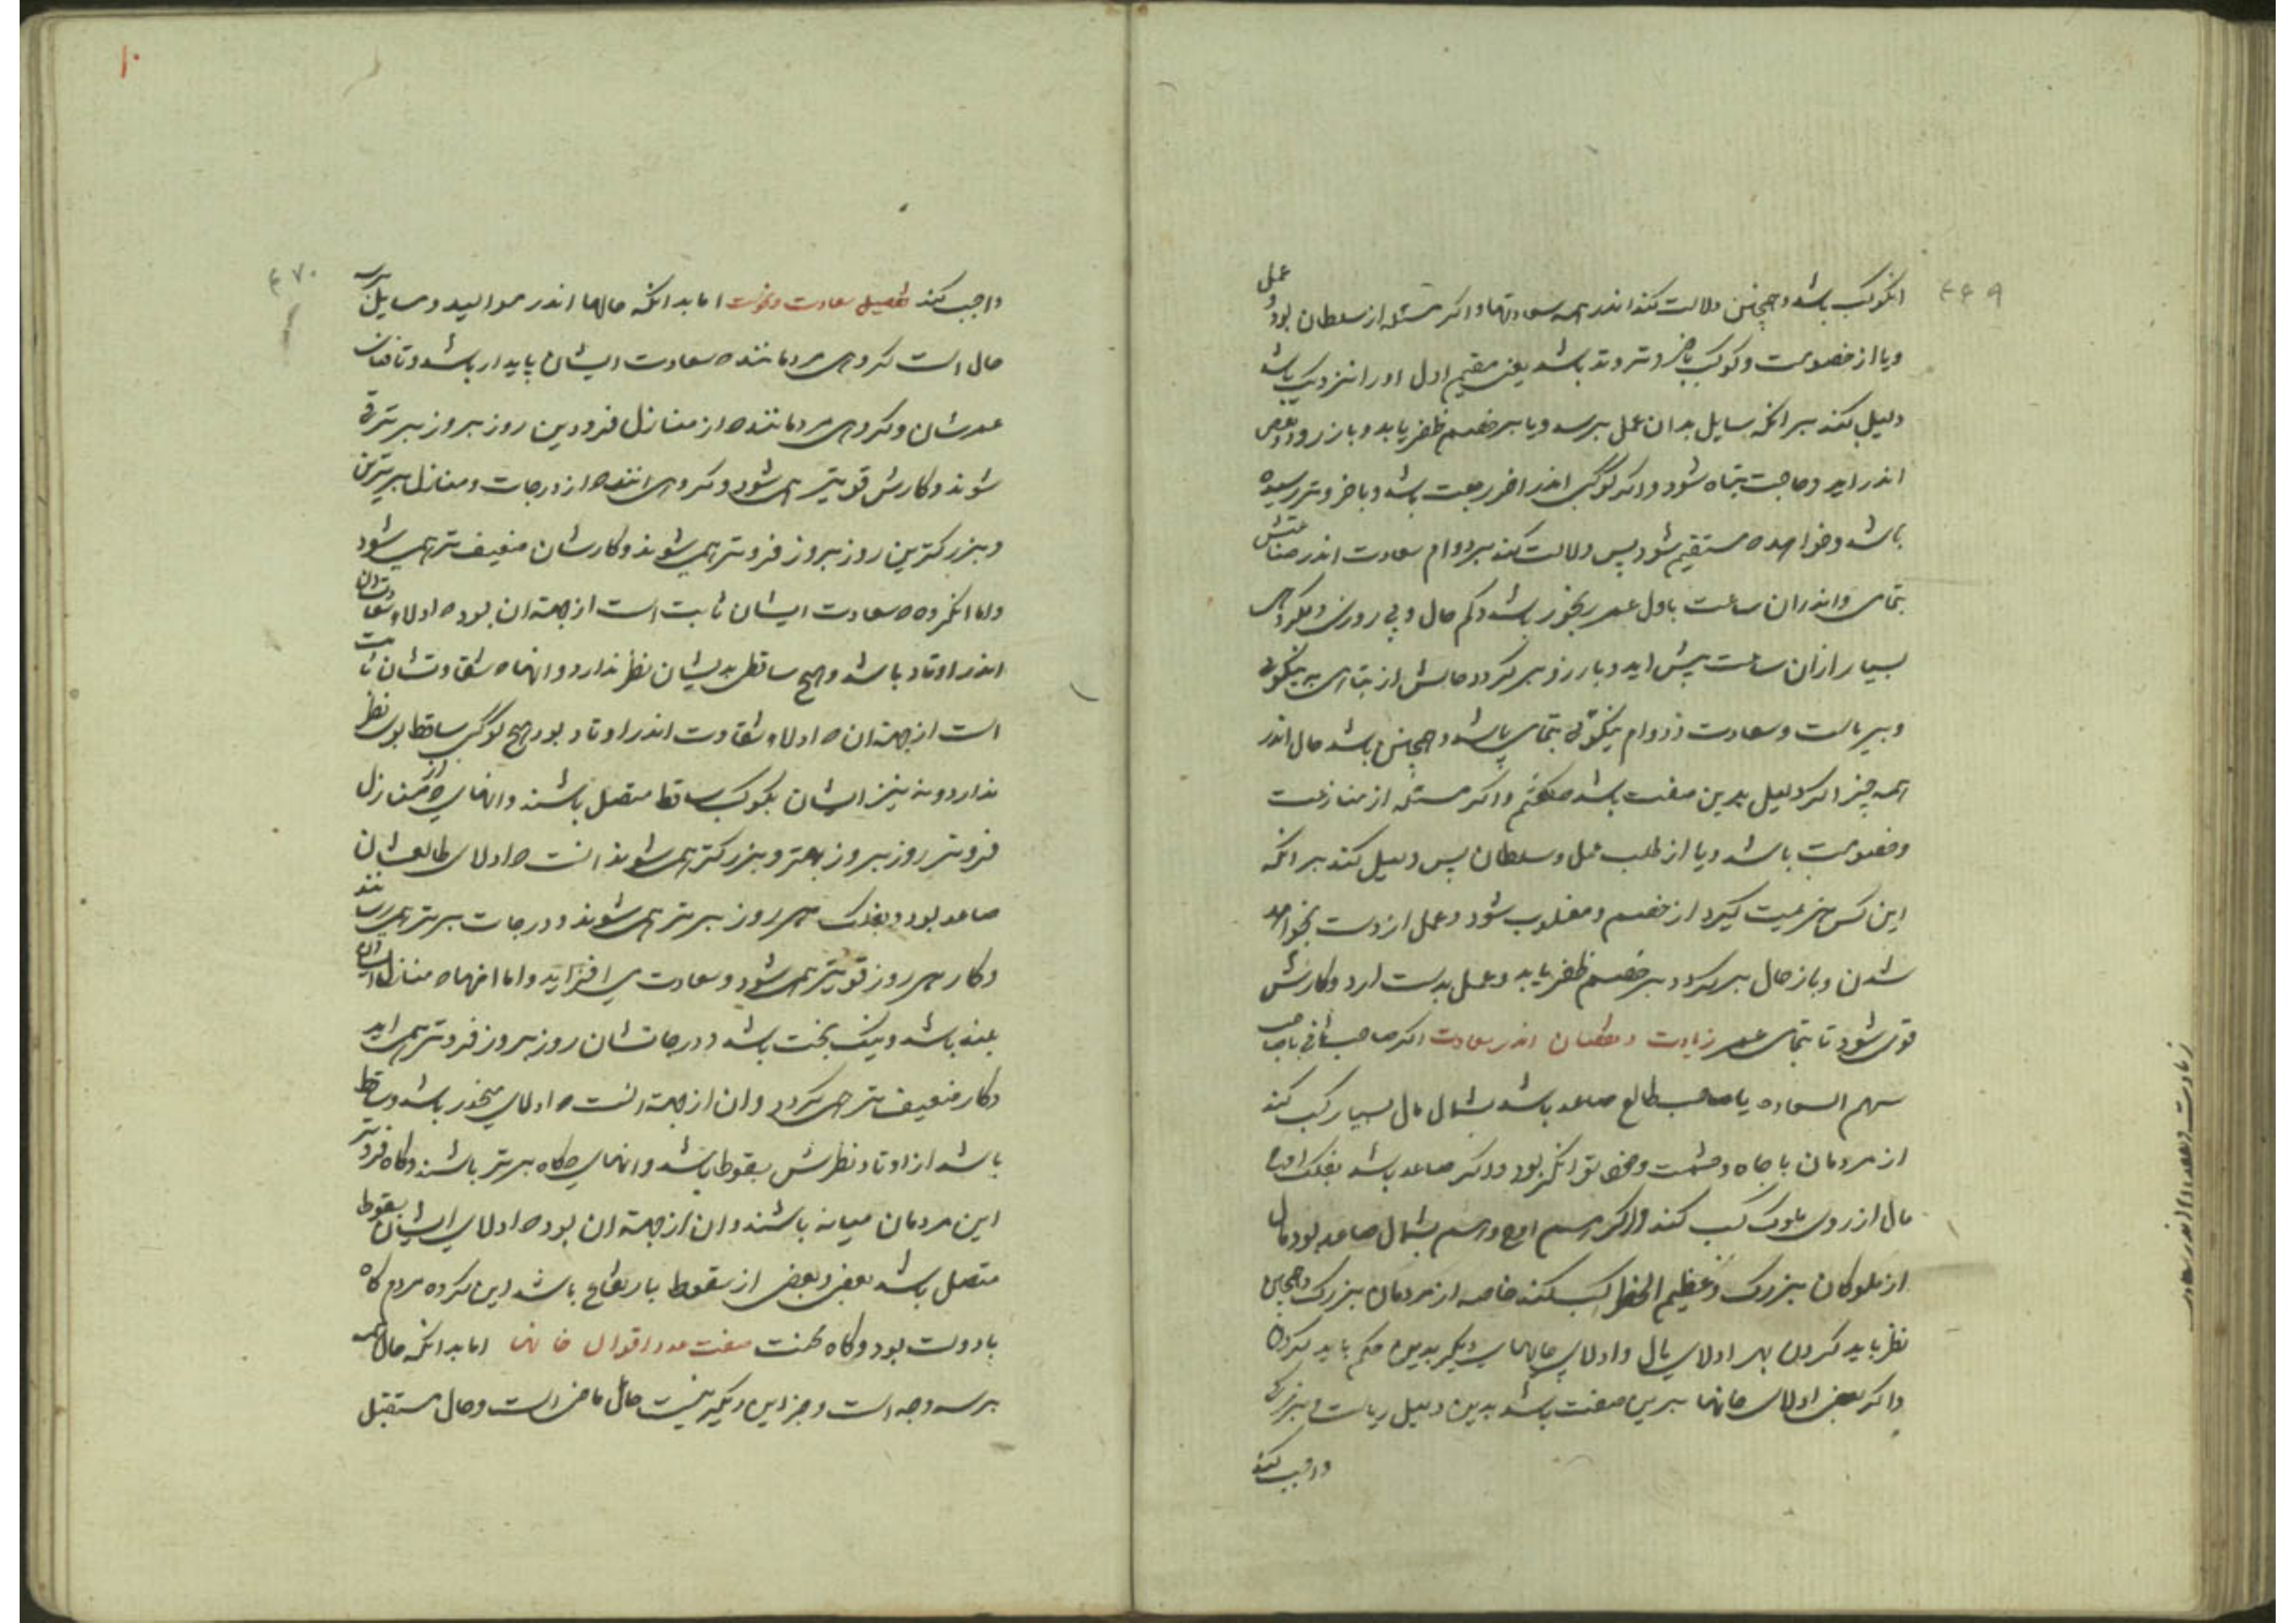 ۴۶۹
انکوکب باشد و همچنین دلالت کند اندر همه سعادتها و اکر مسئله از سلطان بود و عمل
ویا از خصومت و کوکب باخر وتر وتد باشد یعنی مقیم اول اورا نزدیک باشد
دلیل کند بر انکه سایل بدان عمل برسد ویا بر خصم ظفر یابد و باز رود
اندر اید و حاجت بتماه شود و اکر کوکبی اندر اخر رجعت باشد و باخر وتر رسیده
باشد و خواهده مستقیم شود پس دلالت کند بر دوام سعادت اندر صناعتش
بتمامی و اندران ساعت باول عمر رنجور باشد و کم حال و بی روزی و مکروهی
بسیار ازان ساعت پیش اید و باز روز بر کردد حالش از تباهی به نیکوئی
و بریاست و سعادت و دوام نیکوئی بتمامی باشد و همچنین باشد حال اندر
همه چیز اکر دلیل بدین صفت باشد که کفتم و اکر مسئله از منازعت
و خصومت باشد ویا از طلب عمل و سلطان پس دلیل کند بر انکه
این کس هزیمیت کیرد از خصم و مغلوب شود و عمل از دست بخواهد
شدن و باز حال بر کردد بر خصم ظفر یابد و عمل بدست ارد و کارش
قوی شود تا بتمامی عمر زیادت و نقصان اندر سعادت اکر صاحب ثانی با صاحب
سهم السعاده یا صاحب طالع صاعد باشد بشمال مال بسیار کسب کند
از مردمان با جاه و حشمت و توانکر بود و اکر صاعد باشد بفلک اوج
مال از روی ملوک کسب کند و اکر هم اوج و هم بشمال صاعد بود مال
از ملوکان بزرک و عظیم الخطر کسب کند خاصه از مردمان بزرک و همچنین
نظر باید کردن بهر ادلای مال و ادلای خانهای دیکر بدین حکم باید کردن
و اکر بعضی ادلای خانها برین صفت باشد بدین دلیل ریاست و بزرکی
واجب کند
زیادت و نقصان اندر سعادت
۱۰
۴۷۰
واجب کند تفصیل سعادت و نحوست اما بدانکه حالها اندر موالید و مسایل بر
حال است کروهی مردمانند که سعادت ایشان پایدار باشد
عمرشان و کروهی مردمانند که از منازل فرودین روز بروز برتر
شوند و کارش قویتر همی شود و کروهی انند که از درجات و منازل برترین
و بزرکترین روز بروز فروتر همی شوند و کارشان ضعیف تر همی شود
و اما انکروه که سعادت ایشان ثابت است از جهة ان بود که ادلاء سعادتشان
اندر اوتاد باشد و هیچ ساقط بدیشان نظر ندارد و انها که شقاوتشان ثابت
است از جهة ان که ادلاء شقاوت اندر اوتاد بود و هیچ کوکبی ساقط بوی نظر
ندارد و نه نیز ایشان بکوکب ساقط متصل باشند و انهای که از منازل
فروتر روز بروز بهتر و بزرکتر همی شوند انست که ادلای طالعشان
صاعد بود و بفلک هر روز برتر همی شوند و درجات برتر همی رسانند
و کار هر روز قویتر همی شود و سعادت می افزاید و اما انها که منازل ایشان
بلند باشد و نیک بخت باشد و درجاتشان روز بروز فروتر همی اید
و کار ضعیف تر همی کردد وان از جهة انست که ادلای منحدر باشد و ساقط
باشد از اوتاد و نظرش بسقوط باشد و انهای که کاه برتر باشند و کاه فروتر
این مردمان میانه باشند وان از جهة ان بود که ادلای ایشان بسقوط
متصل باشد بعضی و بعضی از سقوط بارتفاع باشد این کروه مردم کاه
بادولت بود و کاه صفت اقوال خانها اما بدانکه حال همه
بر سه وجه است و جز این دیکر نیست حال ماضی است و حال مستقبل